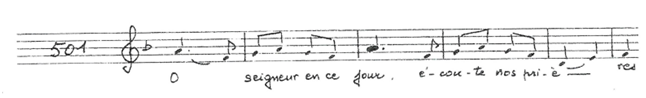 501
O seigneur en ce jour. é-cou-te nos pri-è— res